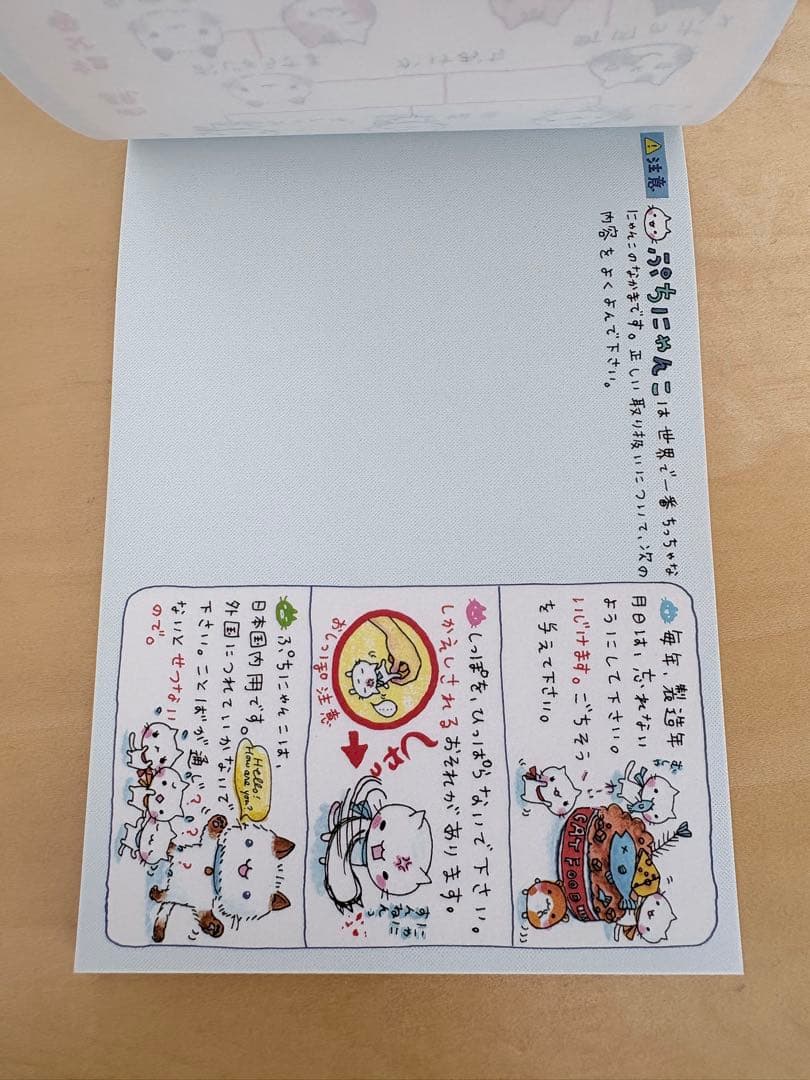 注意
ぷちにゃんこは世界で一番ちっちゃな
にゃんこのなかまです。正しい取り扱いについて、次の
内容をよくよんで下さい。
毎年、製造年
月日は、忘れない
ようにして下さい。
いじけます。ごちそう
を与えて下さい。
CAT FOOD
しっぽを、ひっぱらないで下さい。
しかえしされるおそれがあります。
おしっぽ注意
しゃっ
にゃに
すんねんっ
ぷちにゃんこは、
日本国内用です。
外国につれていかないで
下さい。ことばが通じ
ないと せつない
ので。
Hello!
How are you?
? ? ?